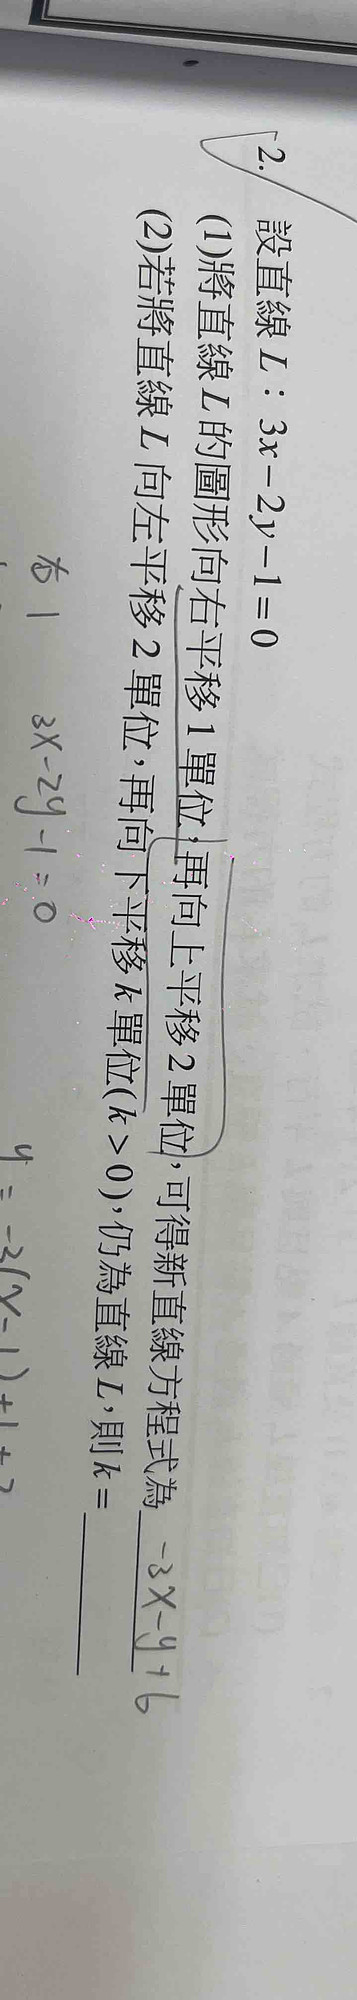 2. 設直線 L：3x－2y－1＝0
(1)將直線 L 的圖形向右平移 1 單位，再向上平移 2 單位，可得新直線方程式為 -3x-y+6
(2)若將直線 L 向左平移 2 單位，再向下平移 k 單位(k＞0)，仍為直線 L，則 k＝
右1 3x-2y-1=0
y=-3(x-1)+1+2